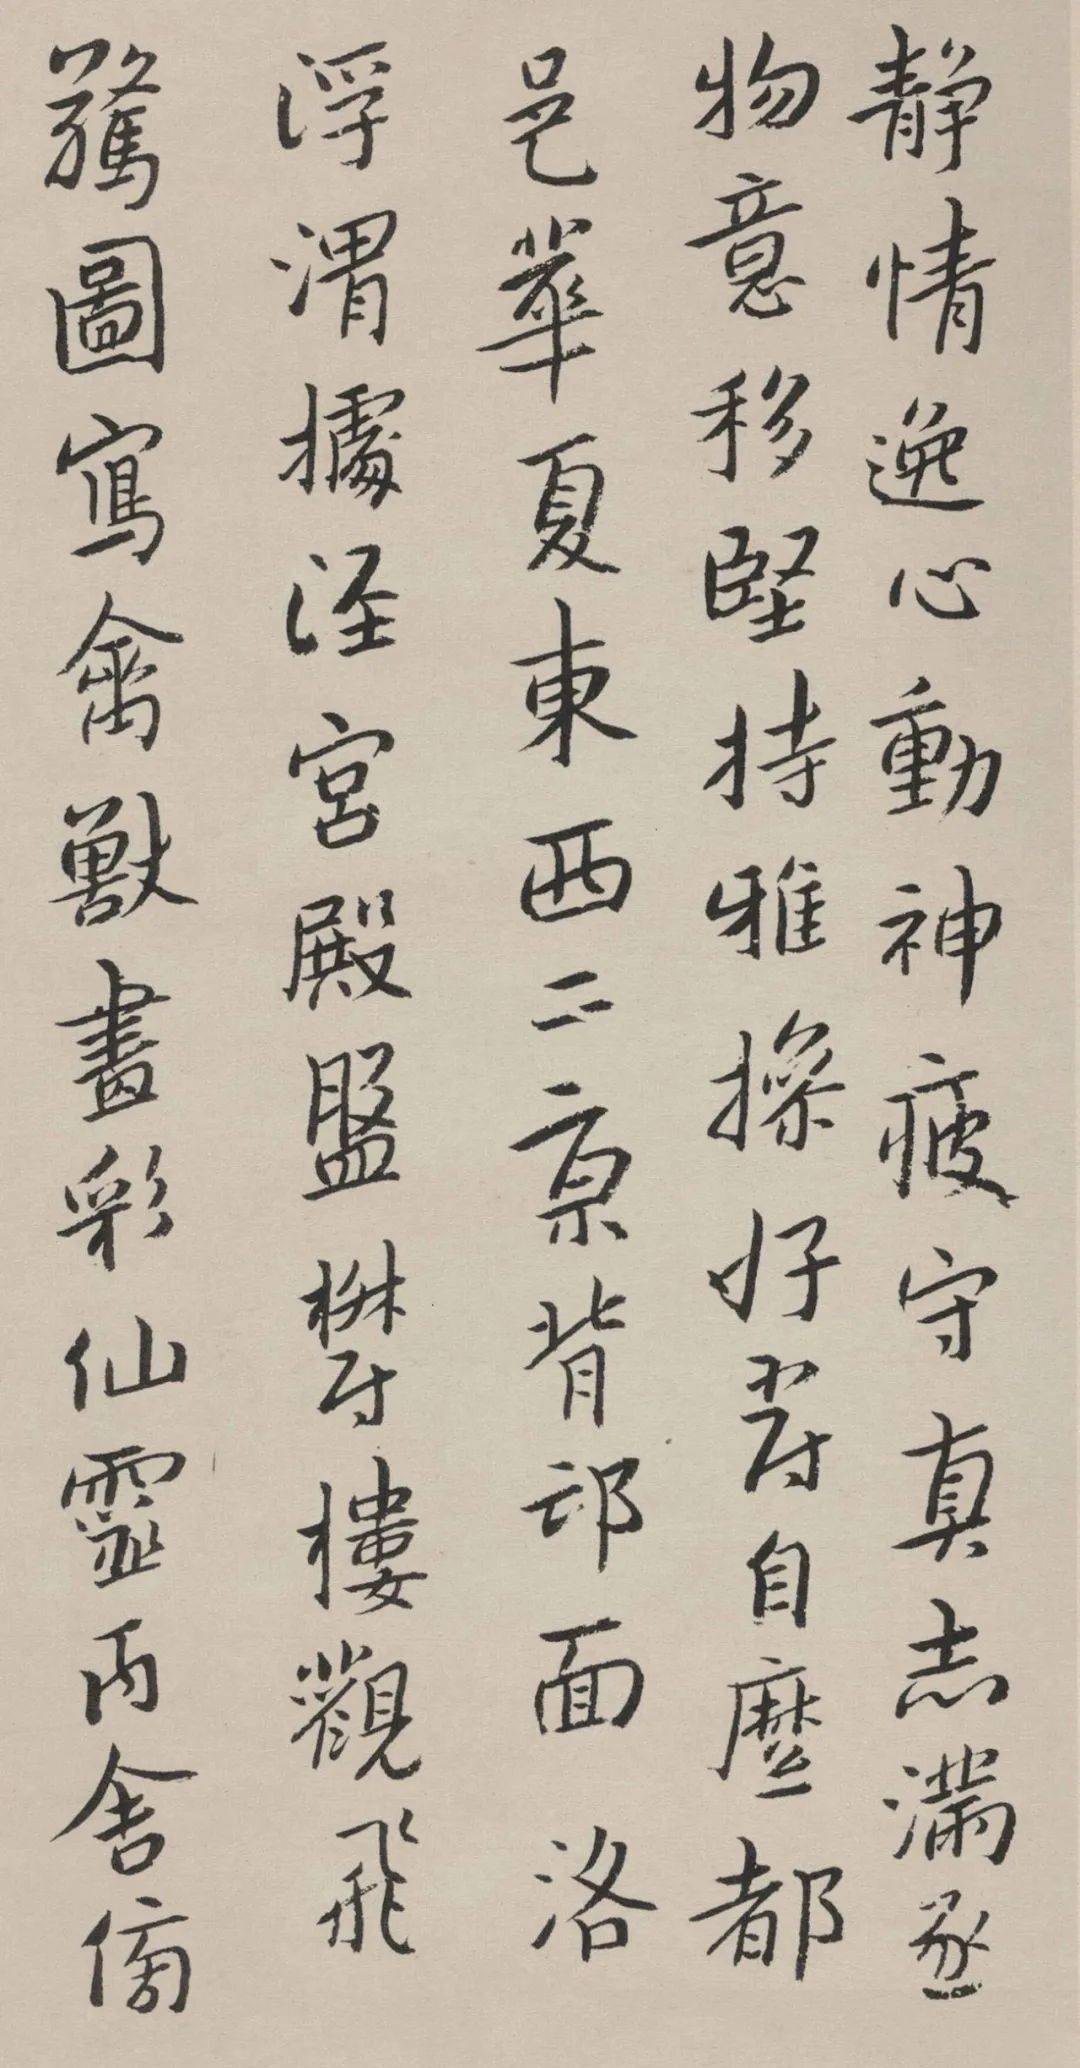 静情逸心動神疲守真志滿逐
物意移堅持雅操好爵自縻都
邑華夏東西二亰背邙面洛
浮渭據涇宮殿盤欝樓觀飛
驚圖寫禽獸畫彩仙靈丙舍傍